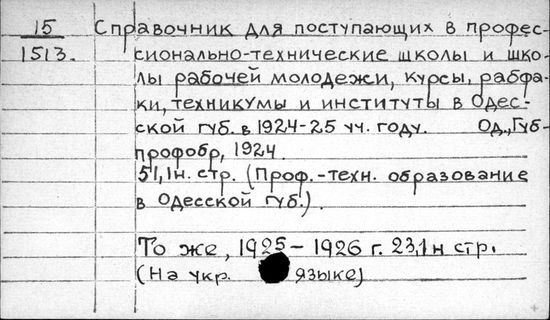 15
1513.
Справочник для поступающих в профес-
сионально-технические школы и шко-
лы рабочей молодежи, курсы, рабфа-
ки, техникумы и институты в Одес-
ской губ. в 1924-25 уч. году. Од., Губ-
профобр, 1924.
51,1н. стр. (Проф.-техн. образование
в Одесской губ.).
То же, 1925-1926 г. 23,1н стр.
(На укр. языке)